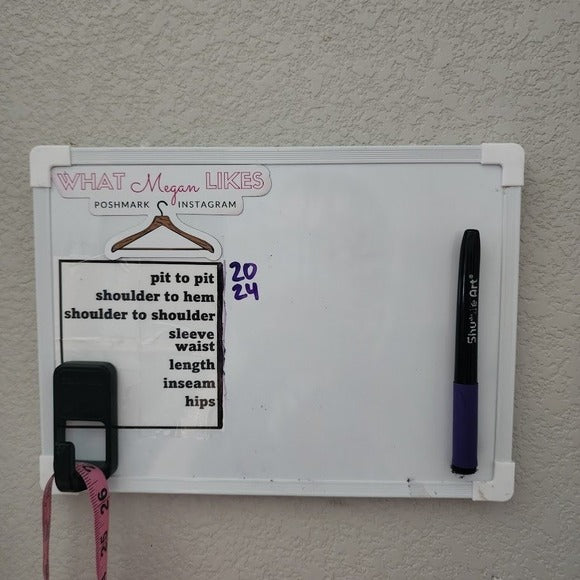 WHAT Megan LIKES
POSHMARK INSTAGRAM
pit to pit 20
shoulder to hem 24
shoulder to shoulder
sleeve
waist
length
inseam
hips
Shuttle Art
26
25